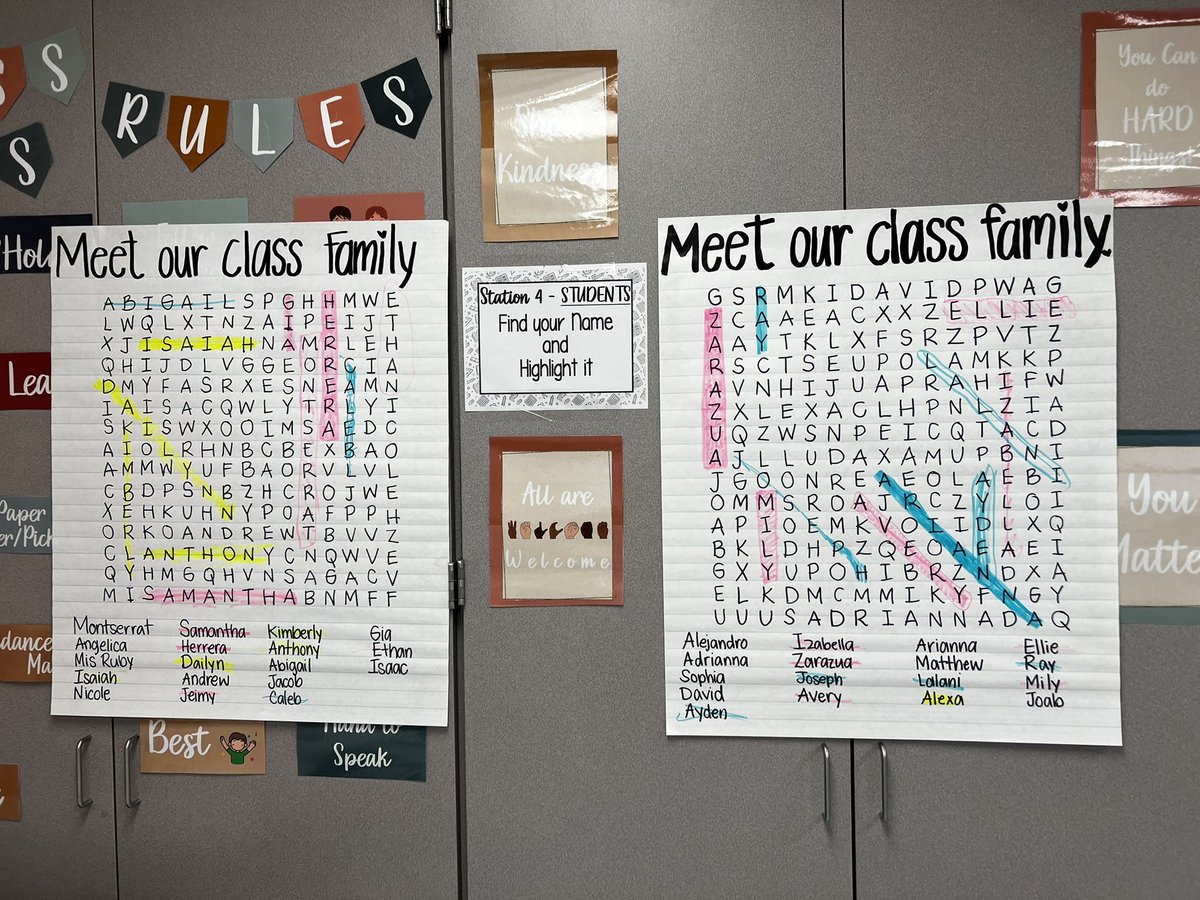 S
RULES
S
Hol
Lea
Show
Kindness
You Can
do
HARD
Things!
Meet our class family
ABIGAILSPGHHMWE
LWQLXTNZAIPEIJT
XJISAIAHNAMRLEH
QHIJDLVGGEORCIA
DMYFASRXESNEAMN
IAISACQWLYTRLYI
SKISWXOOIMSAEDC
AIOLRHNBCBEXBAO
AMMWYUFBAORVLVL
CBDPSNBZHCROJWE
XEHKUHNYPOAFPPH
ORKOANDREWTBVVZ
CLANTHONYCNQWVE
QYHMGQHVNSAGACV
MISAMANTHABNMFF
Montserrat Samantha Kimberly Gia
Angelica Herrera Anthony Ethan
Mis Ruby Dailyn Abigail Isaac
Isaiah Andrew Jacob
Nicole Jeimy Caleb
Station 4 - STUDENTS
Find your Name
and
Highlight it
All are
Welcome
Meet our class family.
GSRMKIDAVIDPWAG
ZCAAEACXXZELLIE
AAYTKLXFSRZPVTZ
RSCTSEUPOLAMKKP
AVNHIJUAPRAHIFW
ZXLEXACLHPNLZIA
UQZWSNPEICQTACD
AJLLUDAXAMUPBNI
JGOONREAEOLAEBI
OMMSROAJRCZYLOI
APIOEMKVOIIDUXQ
BKLDHPZQEOAEAEI
GXYUPOHIBRZNDXA
ELKDMCMMIKYFNGY
UUUSADRIANNADAQ
Alejandro Izabella Arianna Ellie
Adrianna Zarazua Matthew Ray
Sophia Joseph Lalani Mily
David Avery Alexa Joab
Ayden
Paper
er/Pick
dance
Ma
Best
Hand to
Speak
You
Matte